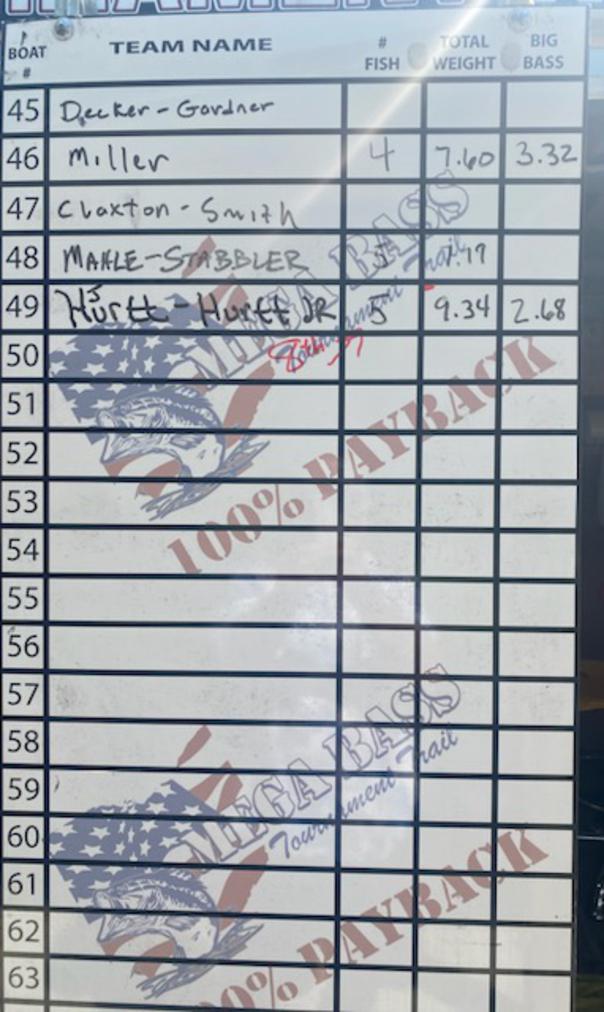 BOAT # TEAM NAME # FISH TOTAL WEIGHT BIG BASS
45 Decker - Gordner
46 Miller 4 7.60 3.32
47 Claxton - Smith
48 MAHLE-STABBLER 5 7.17
49 Hurtt - Hurtt JR 5 9.34 2.68
50 8th
51
52
53
54
55
56
57
58
59
60
61
62
63
MEGA BASS
Tournament Trail
100% PAYBACK
MEGA BASS
Tournament Trail
100% PAYBACK